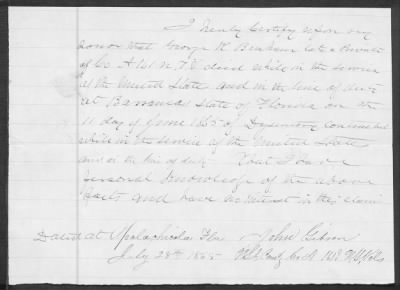 I hereby Certify upon my
honor that George H. late a Private
of Co. A 161 N.Y.V. died while in the service
of the United States and in the line of duty
at Barrancas State of Florida on the
11 day of June 1865 of Dysentery contracted
while in the service of the United States
and in the line of duty. That I have
personal knowledge of the above
facts and have no interest in this claim
Dated at Apalachicola Fla John Gibson
July 28th 1865 Co A 161 N.Y. Vols